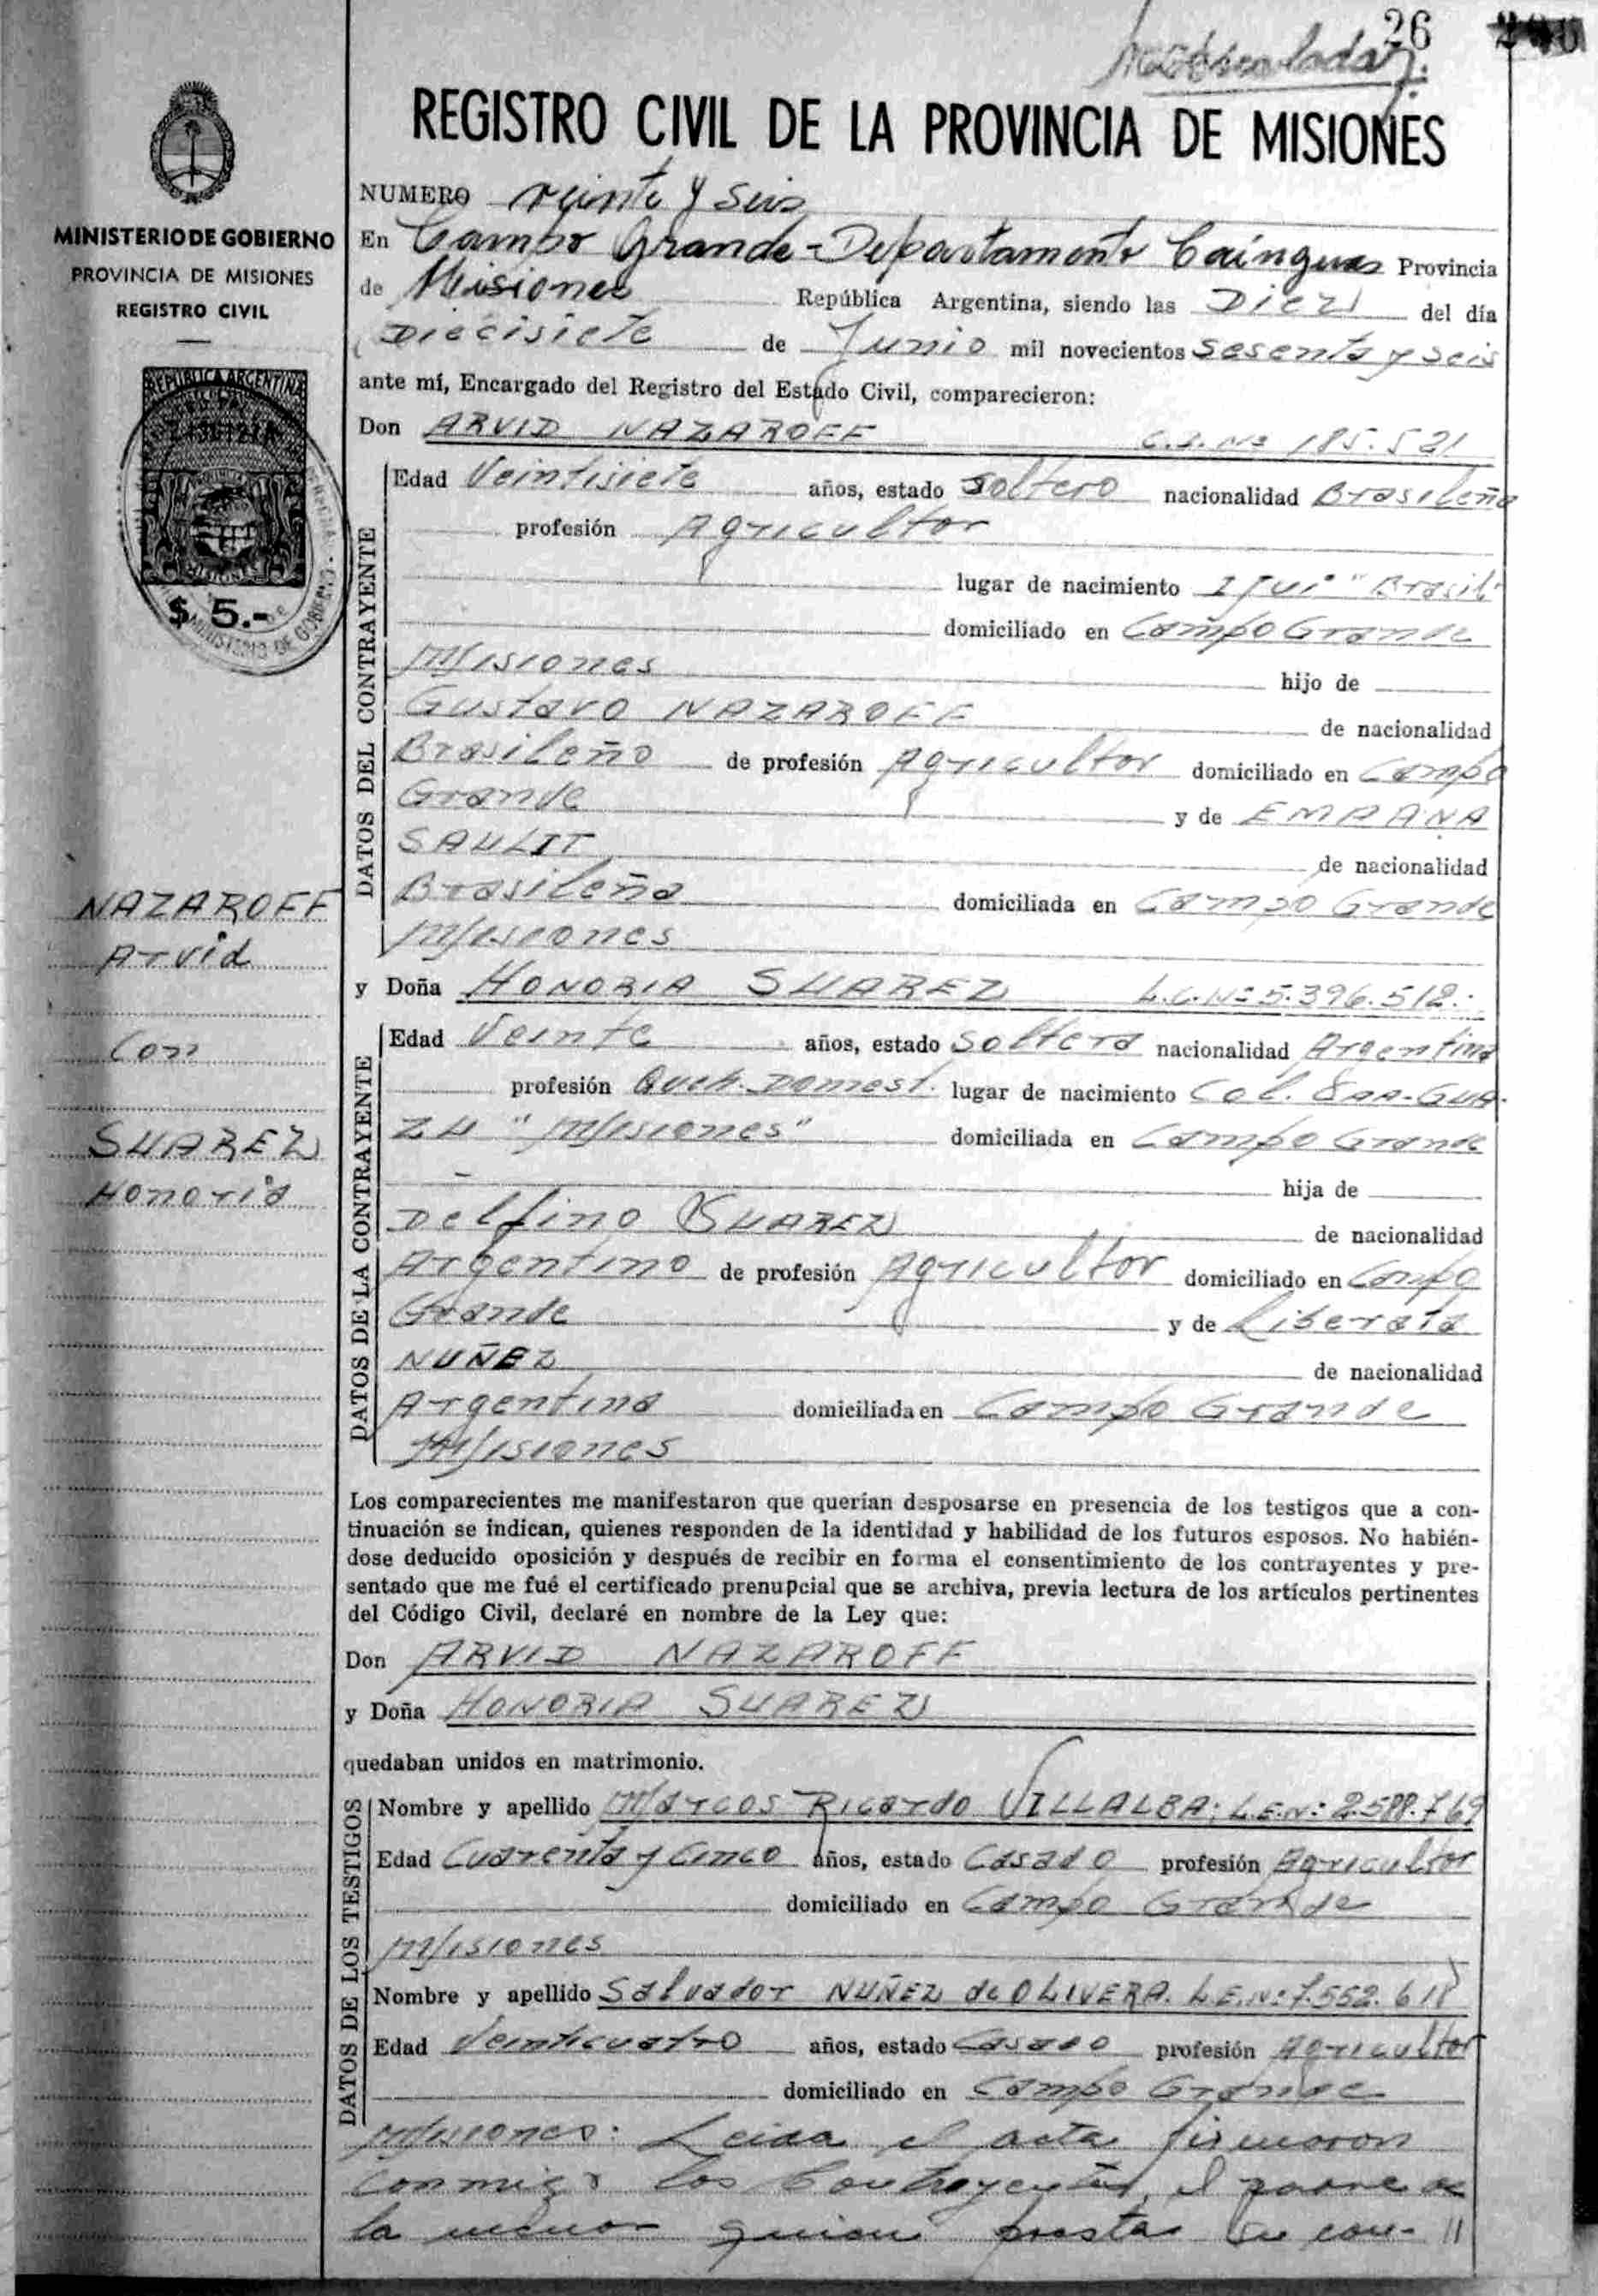 26
REGISTRO CIVIL DE LA PROVINCIA DE MISIONES
MINISTERIO DE GOBIERNO
PROVINCIA DE MISIONES
REGISTRO CIVIL
REPUBLICA ARGENTINA
MISIONES
$ 5.-
MINISTERIO DE GOBIERNO
NAZAROFF
Arvid
Con
SUAREZ
Honoria
NUMERO veinte y seis
En Campo Grande - Departamento Cainguas Provincia
de Misiones República Argentina, siendo las Diez del día
Diecisiete de Junio mil novecientos sesenta y seis
ante mí, Encargado del Registro del Estado Civil, comparecieron:
Don ARVID NAZAROFF C.I. Nº 185.521
DATOS DEL CONTRAYENTE
Edad Veintisiete años, estado Soltero nacionalidad Brasileña
profesión Agricultor
lugar de nacimiento Ijui "Brasil"
domiciliado en Campo Grande
Misiones hijo de
Gustavo NAZAROFF de nacionalidad
Brasileño de profesión Agricultor domiciliado en Campo
Grande y de
SAULIT de nacionalidad
Brasileña domiciliada en Campo Grande
Misiones
y Doña HONORIA SUAREZ L.C. Nº 5.396.512.
DATOS DE LA CONTRAYENTE
Edad Veinte años, estado Soltera nacionalidad Argentina
profesión Queh. Domest. lugar de nacimiento Col.
"Misiones" domiciliada en Campo Grande
hija de
Delfino SUAREZ de nacionalidad
Argentino de profesión Agricultor domiciliado en Campo
Grande y de Liberata
NUÑEZ de nacionalidad
Argentina domiciliada en Campo Grande
Misiones
Los comparecientes me manifestaron que querían desposarse en presencia de los testigos que a con-
tinuación se indican, quienes responden de la identidad y habilidad de los futuros esposos. No habién-
dose deducido oposición y después de recibir en forma el consentimiento de los contrayentes y pre-
sentado que me fué el certificado prenupcial que se archiva, previa lectura de los artículos pertinentes
del Código Civil, declaré en nombre de la Ley que:
Don ARVID NAZAROFF
y Doña HONORIA SUAREZ
quedaban unidos en matrimonio.
DATOS DE LOS TESTIGOS
Nombre y apellido Marcos Ricardo VILLALBA; L.E.Nº: 2.588.769
Edad Cuarenta y Cinco años, estado Casado profesión Agricultor
domiciliado en Campo Grande
Misiones
Nombre y apellido Salvador NUÑEZ de OLIVERA. L.E.Nº: 7.552.618
Edad Veinticuatro años, estado Casado profesión Agricultor
domiciliado en Campo Grande
Misiones: Leida el acta firmaron
conmigo los Contrayentes, el padre de
la menor quien presta su con- //